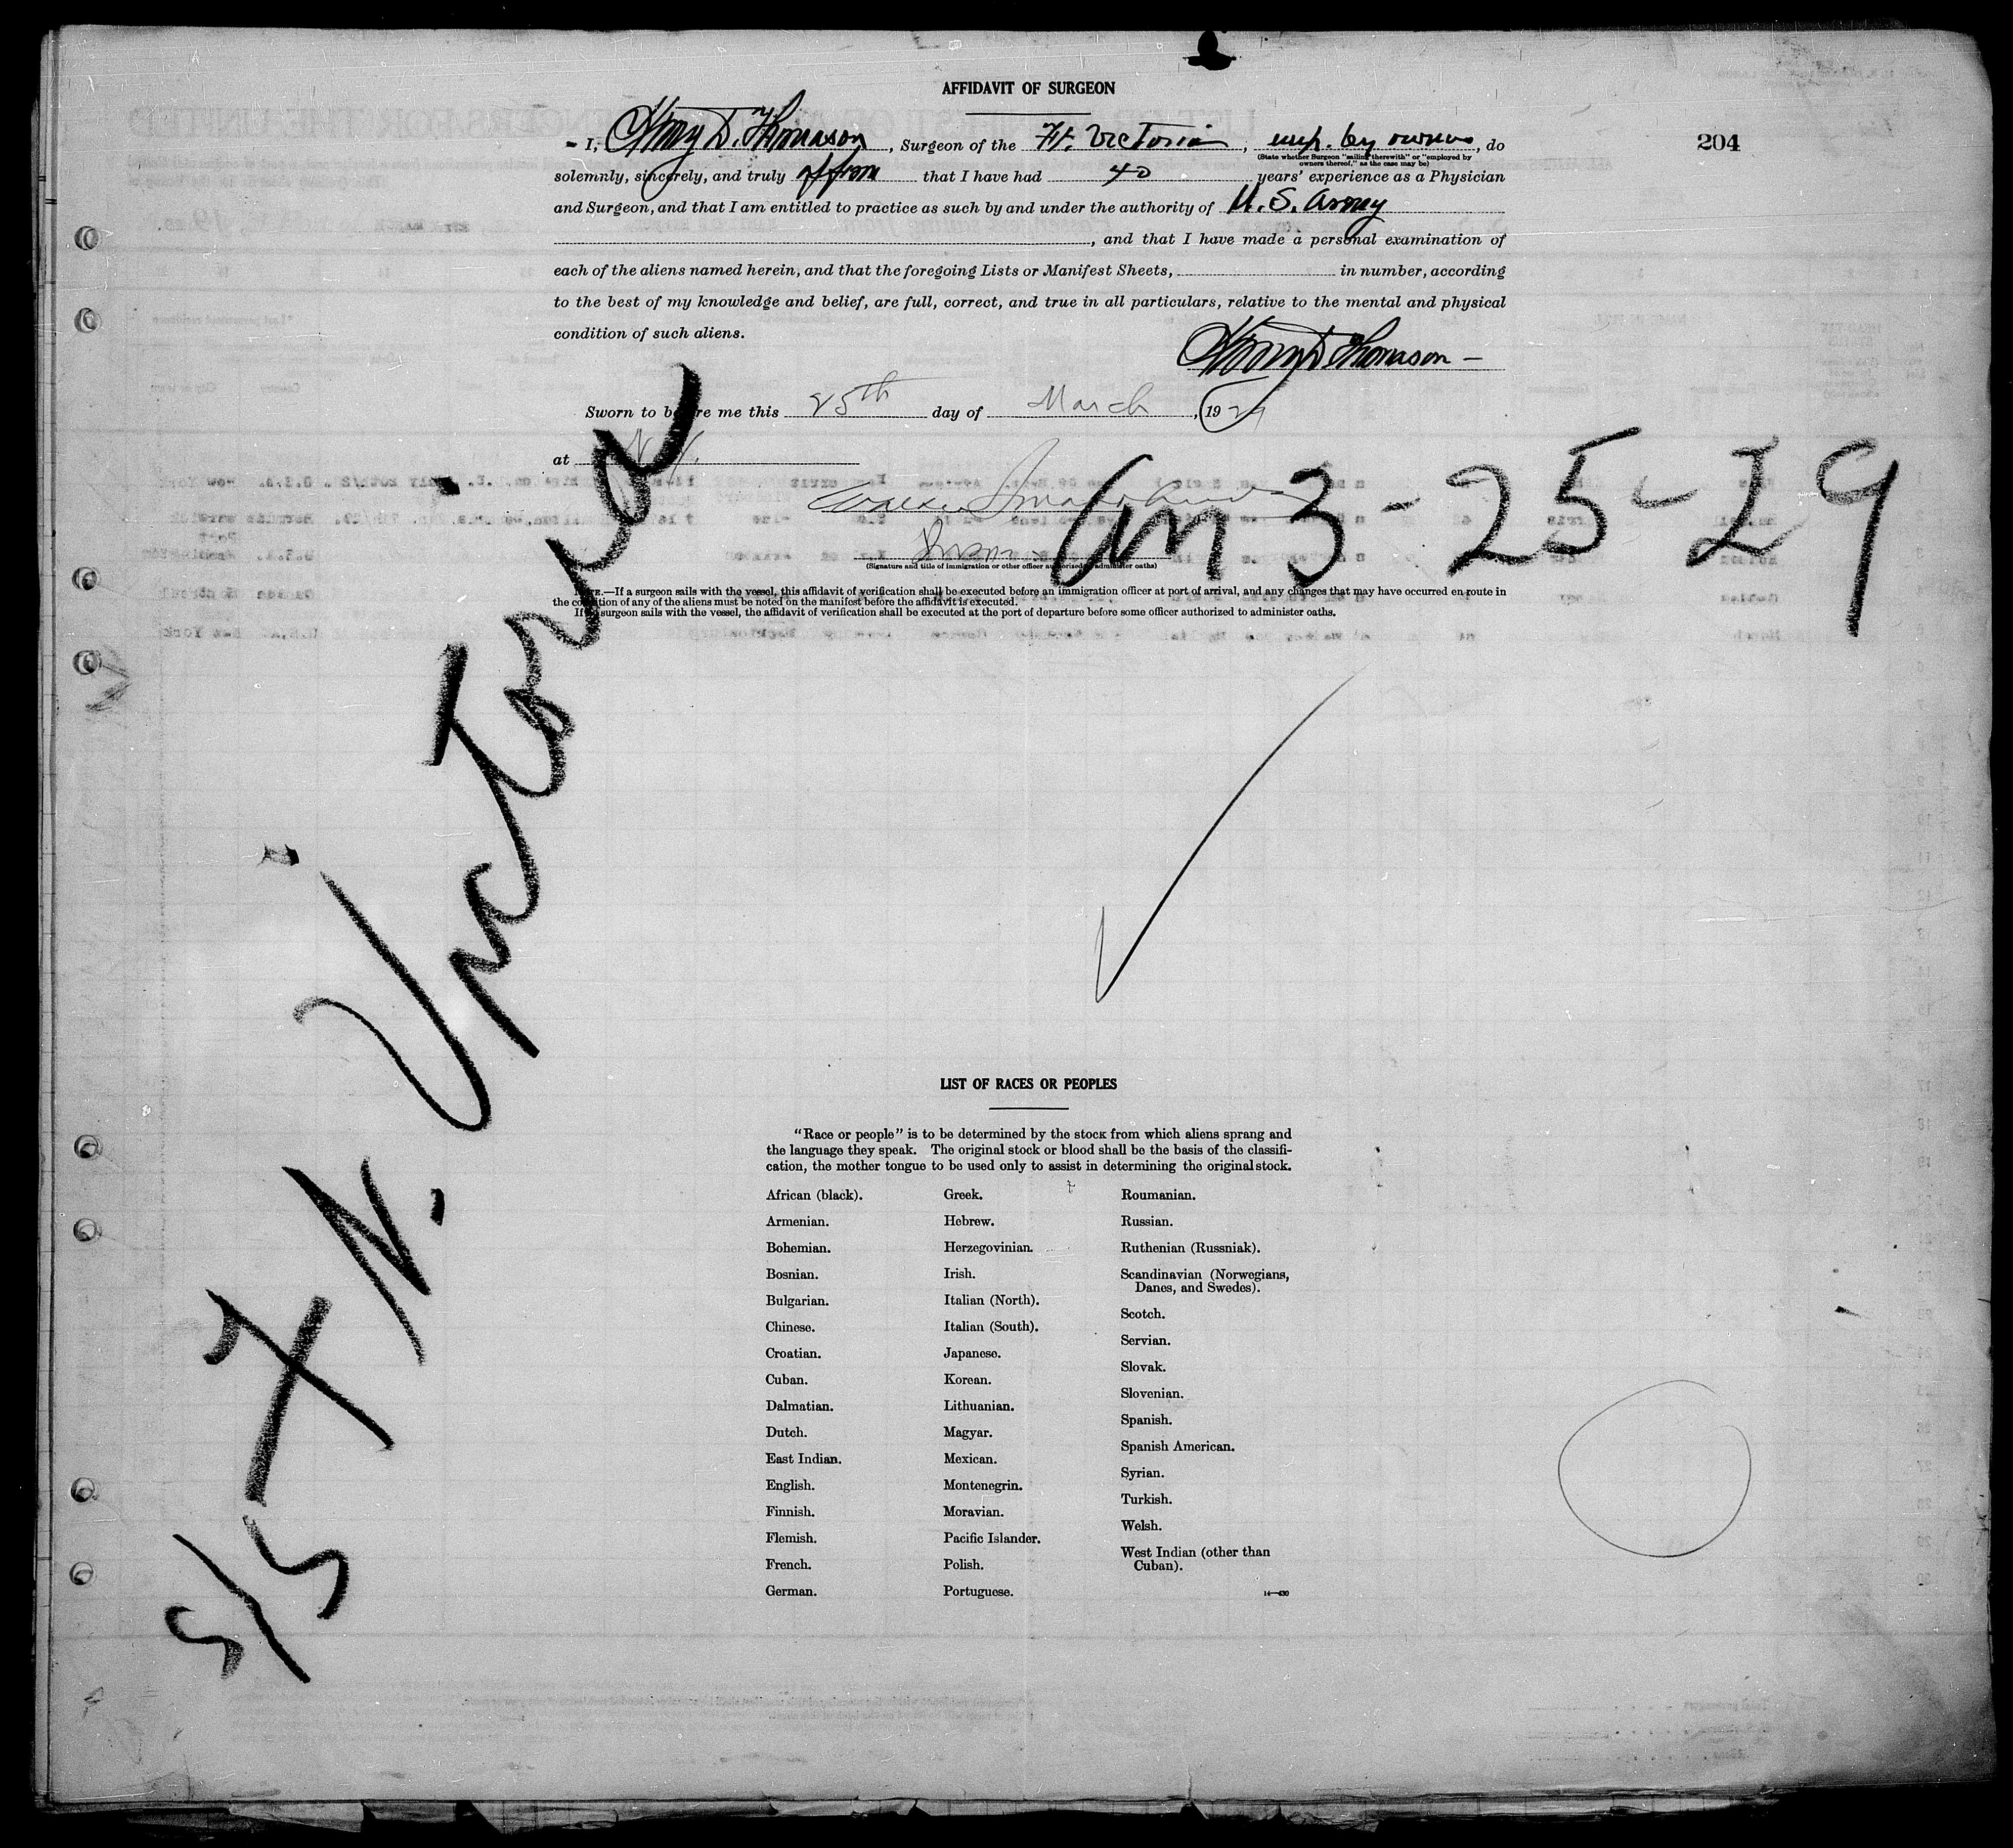 AFFIDAVIT OF SURGEON
204
I, Henry D. Thomason, Surgeon of the Ft. Victoria, emp. by owners, do
(State whether Surgeon "sailing therewith" or "employed by
owners thereof," as the case may be)
solemnly, sincerely, and truly affirm that I have had 40 years' experience as a Physician
and Surgeon, and that I am entitled to practice as such by and under the authority of U.S. Army
, and that I have made a personal examination of
each of the aliens named herein, and that the foregoing Lists or Manifest Sheets, in number, according
to the best of my knowledge and belief, are full, correct, and true in all particulars, relative to the mental and physical
condition of such aliens.
Henry D Thomason
Sworn to before me this 25th day of March, 1929
at N.Y.
Arr 3-25-29
(Signature and title of immigration or other officer authorized to administer oaths)
NOTE.—If a surgeon sails with the vessel, this affidavit of verification shall be executed before an immigration officer at port of arrival, and any changes that may have occurred en route in
the condition of any of the aliens must be noted on the manifest before the affidavit is executed.
If no surgeon sails with the vessel, the affidavit of verification shall be executed at the port of departure before some officer authorized to administer oaths.
S/S Ft. Victoria
LIST OF RACES OR PEOPLES
"Race or people" is to be determined by the stock from which aliens sprang and
the language they speak. The original stock or blood shall be the basis of the classifi-
cation, the mother tongue to be used only to assist in determining the original stock.
African (black).
Armenian.
Bohemian.
Bosnian.
Bulgarian.
Chinese.
Croatian.
Cuban.
Dalmatian.
Dutch.
East Indian.
English.
Finnish.
Flemish.
French.
German.
Greek.
Hebrew.
Herzegovinian.
Irish.
Italian (North).
Italian (South).
Japanese.
Korean.
Lithuanian.
Magyar.
Mexican.
Montenegrin.
Moravian.
Pacific Islander.
Polish.
Portuguese.
Roumanian.
Russian.
Ruthenian (Russniak).
Scandinavian (Norwegians,
Danes, and Swedes).
Scotch.
Servian.
Slovak.
Slovenian.
Spanish.
Spanish American.
Syrian.
Turkish.
Welsh.
West Indian (other than
Cuban).